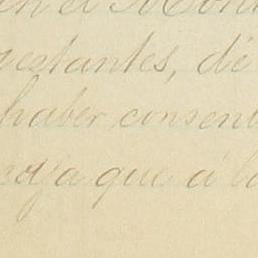 en el Mon
testantes, de
haber consent
que á la